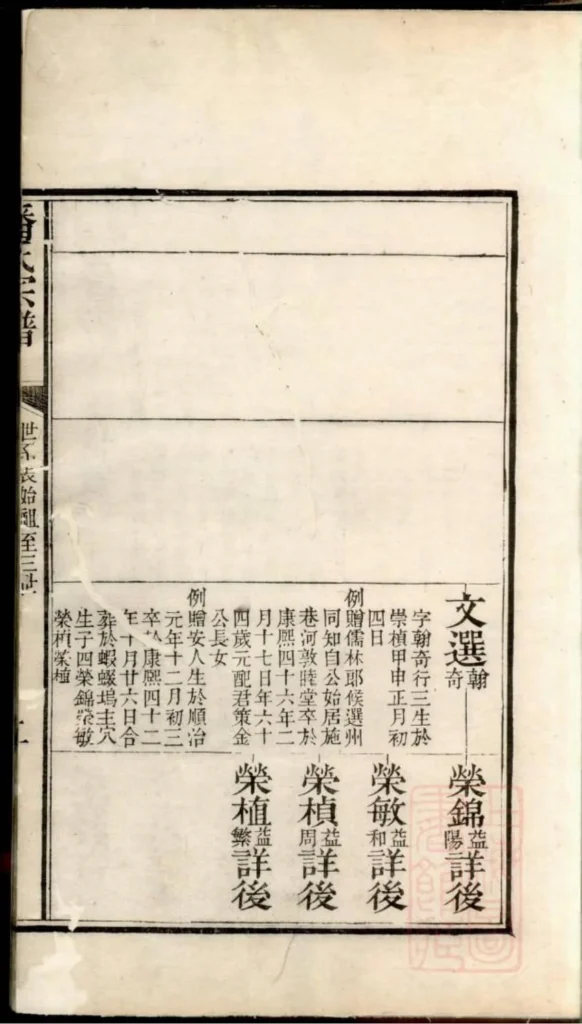 文選翰奇
字翰奇行三生於
崇禎甲申正月初
四日
例贈儒林郎候選州
同知自公始居施
巷河敦睦堂卒於
康熙四十六年二
月十七日年六十
四歲元配君策金
公長女
例贈安人生於順治
元年十二月初三
卒於康熙四十二
年十月廿六日合
葬於蝦螺塢主穴
生子四榮錦榮敏
榮楨榮植
榮錦益陽詳後
榮敏益和詳後
榮楨益周詳後
榮植益繁詳後
潘氏宗譜
世系表始祖至三世